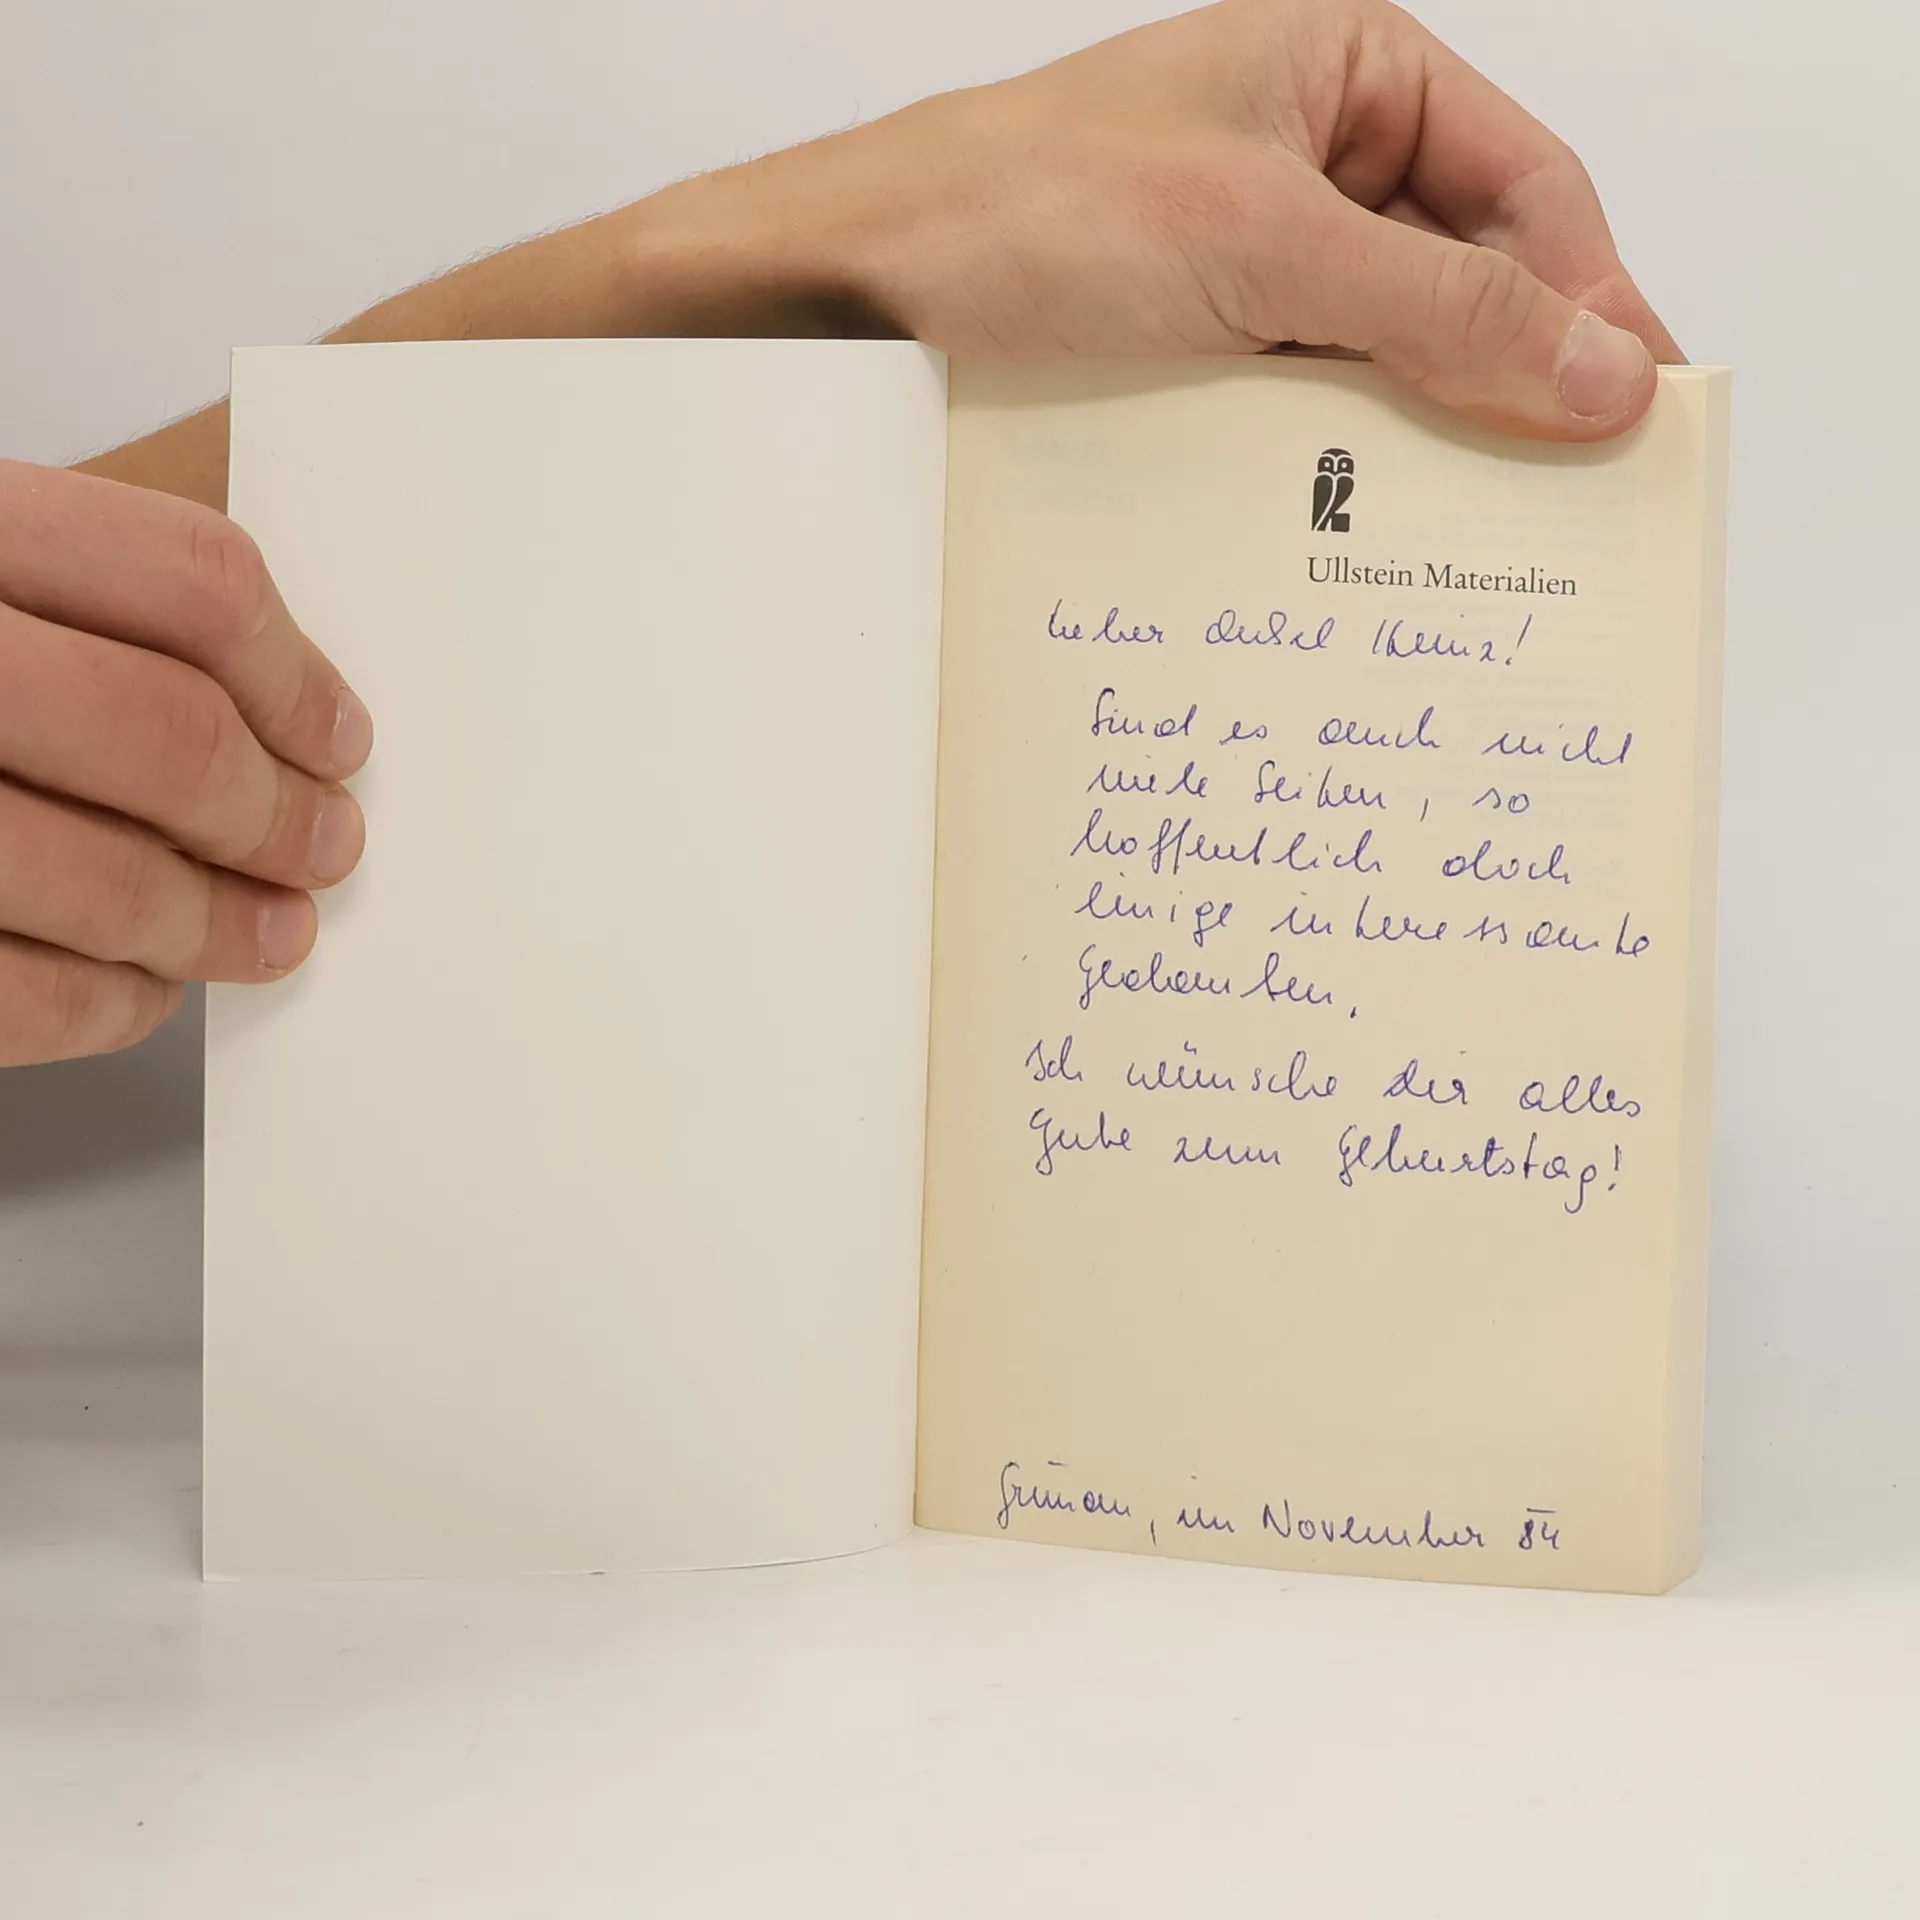 Ullstein Materialien
Lieber Onkel Heinz!
Sind es auch nicht
viele Seiten, so
hoffentlich doch
einige interessante
Gedanken.
Ich wünsche dir alles
Gute zum Geburtstag!
Grünau, im November 84